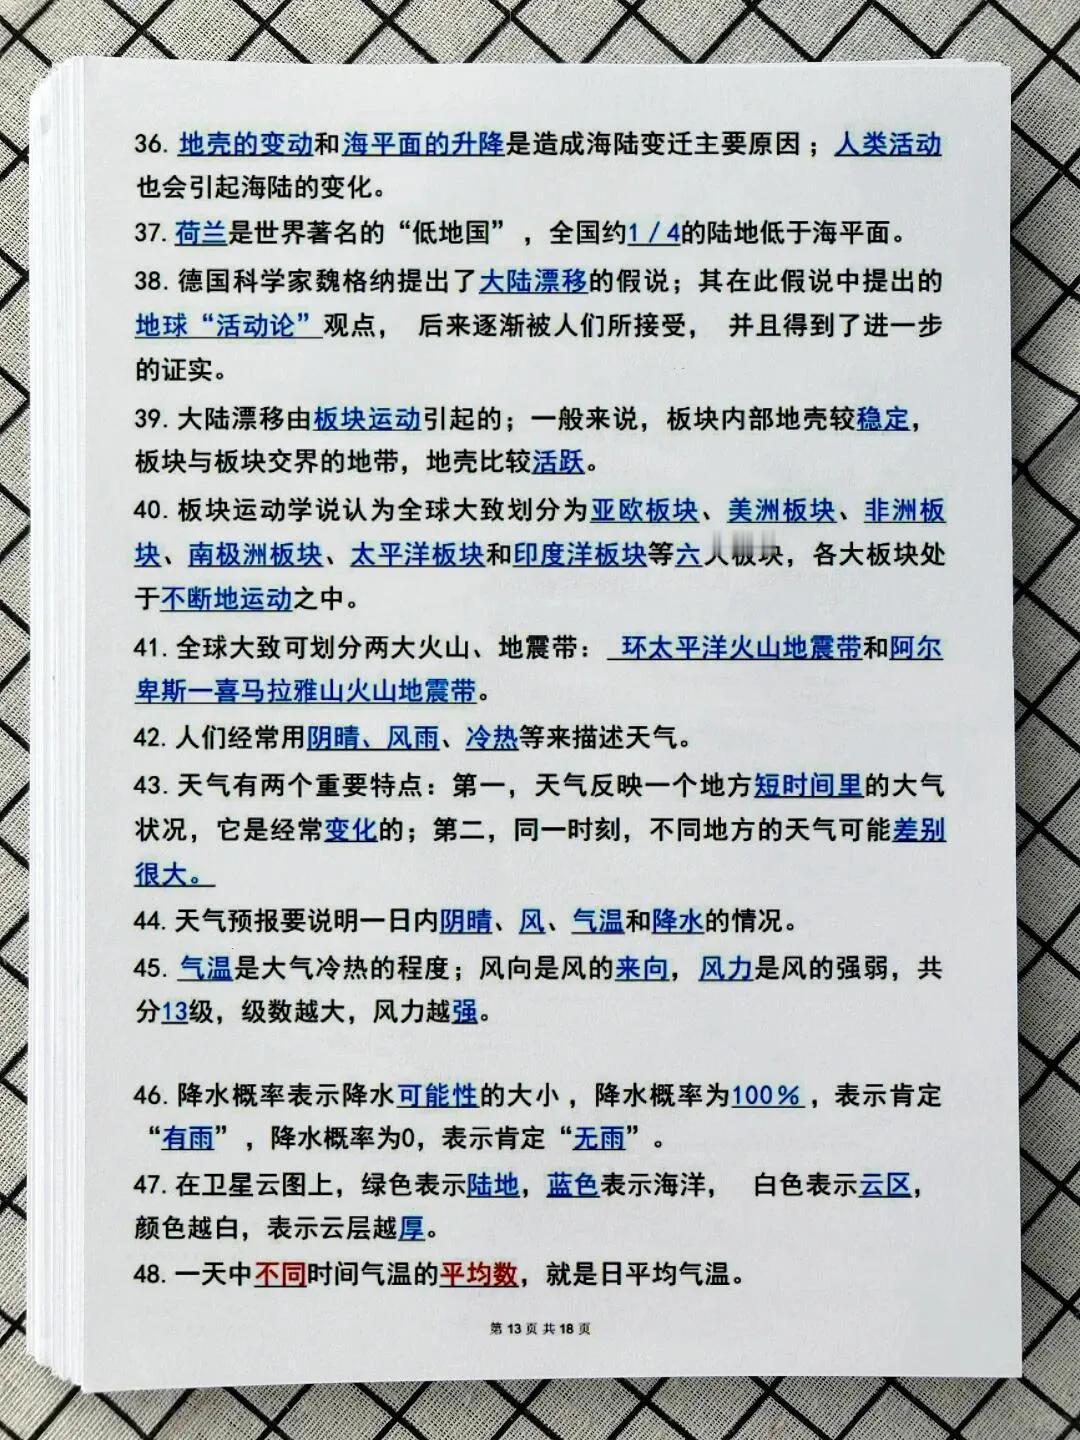 36. 地壳的变动和海平面的升降是造成海陆变迁主要原因；人类活动
也会引起海陆的变化。
37. 荷兰是世界著名的“低地国”，全国约1／4的陆地低于海平面。
38. 德国科学家魏格纳提出了大陆漂移的假说；其在此假说中提出的
地球“活动论”观点， 后来逐渐被人们所接受， 并且得到了进一步
的证实。
39. 大陆漂移由板块运动引起的；一般来说，板块内部地壳较稳定，
板块与板块交界的地带，地壳比较活跃。
40. 板块运动学说认为全球大致划分为亚欧板块、美洲板块、非洲板
块、南极洲板块、太平洋板块和印度洋板块等六大板块，各大板块处
于不断地运动之中。
41. 全球大致可划分两大火山、地震带： 环太平洋火山地震带和阿尔
卑斯—喜马拉雅山火山地震带。
42. 人们经常用阴晴、风雨、冷热等来描述天气。
43. 天气有两个重要特点：第一，天气反映一个地方短时间里的大气
状况，它是经常变化的；第二，同一时刻，不同地方的天气可能差别
很大。
44. 天气预报要说明一日内阴晴、风、气温和降水的情况。
45. 气温是大气冷热的程度；风向是风的来向，风力是风的强弱，共
分13级，级数越大，风力越强。
46. 降水概率表示降水可能性的大小，降水概率为100％，表示肯定
“有雨”，降水概率为0，表示肯定“无雨”。
47. 在卫星云图上，绿色表示陆地，蓝色表示海洋， 白色表示云区，
颜色越白，表示云层越厚。
48. 一天中不同时间气温的平均数，就是日平均气温。
第 13 页 共 18 页